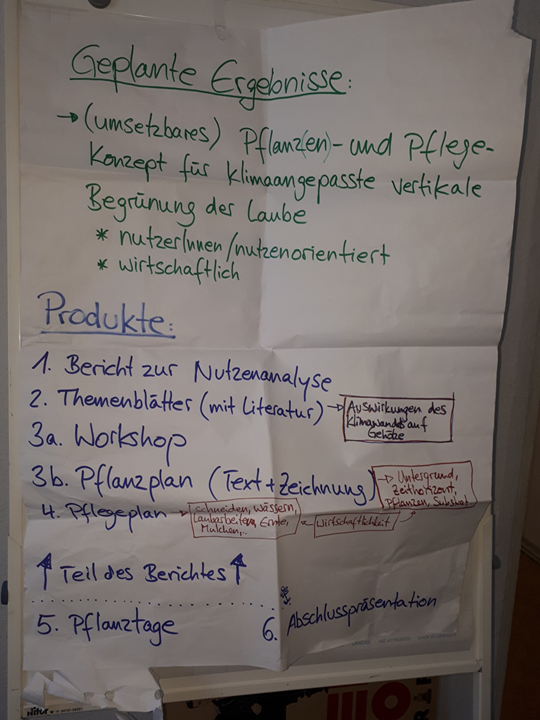 Geplante Ergebnisse:
→ (umsetzbares) Pflanz(en)- und Pflege-
Konzept für klimaangepasste vertikale
Begrünung der Laube
* nutzerInnen/nutzenorientiert
* wirtschaftlich
Produkte:
1. Bericht zur Nutzenanalyse
2. Themenblätter (mit Literatur) → Auswirkungen des
Klimawandels auf
Gehölze
3a. Workshop
3b. Pflanzplan (Text + Zeichnung) → Untergrund,
Zeithorizont,
Pflanzen, Substrat
4. Pflegeplan → schneiden, wässern,
Laubarbeiten, Ernte,
Mulchen,..
Wirtschaftlichkeit
↑ Teil des Berichtes ↑
5. Pflanztage
6. Abschlusspräsentation